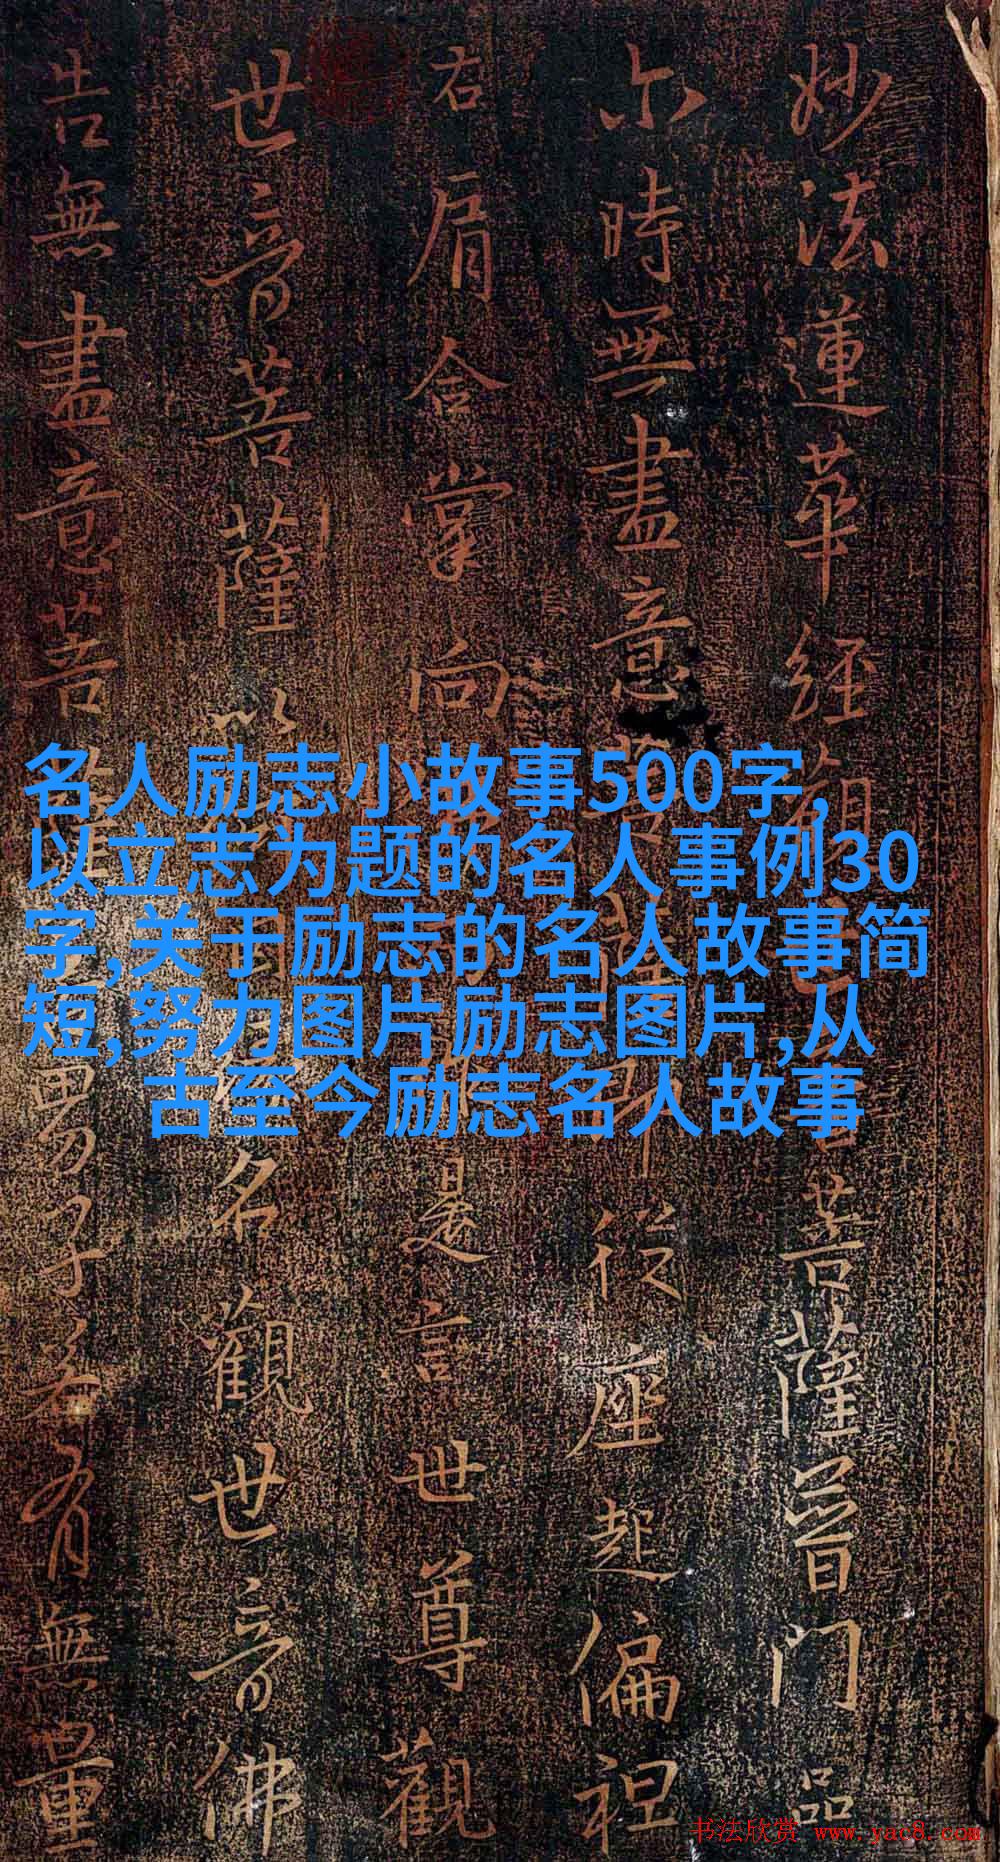 妙法蓮華經觀音菩薩普門品
尒時無盡意菩薩即從座起偏袒
右肩合掌向是言世尊觀
世音菩薩以名觀世音佛
告無盡意菩男子若有無量
名人励志小故事500字,
以立志为题的名人事例30
字,关于励志的名人故事简
短,努力图片励志图片,从
古至今励志名人故事
书法欣赏 www.yac8.com